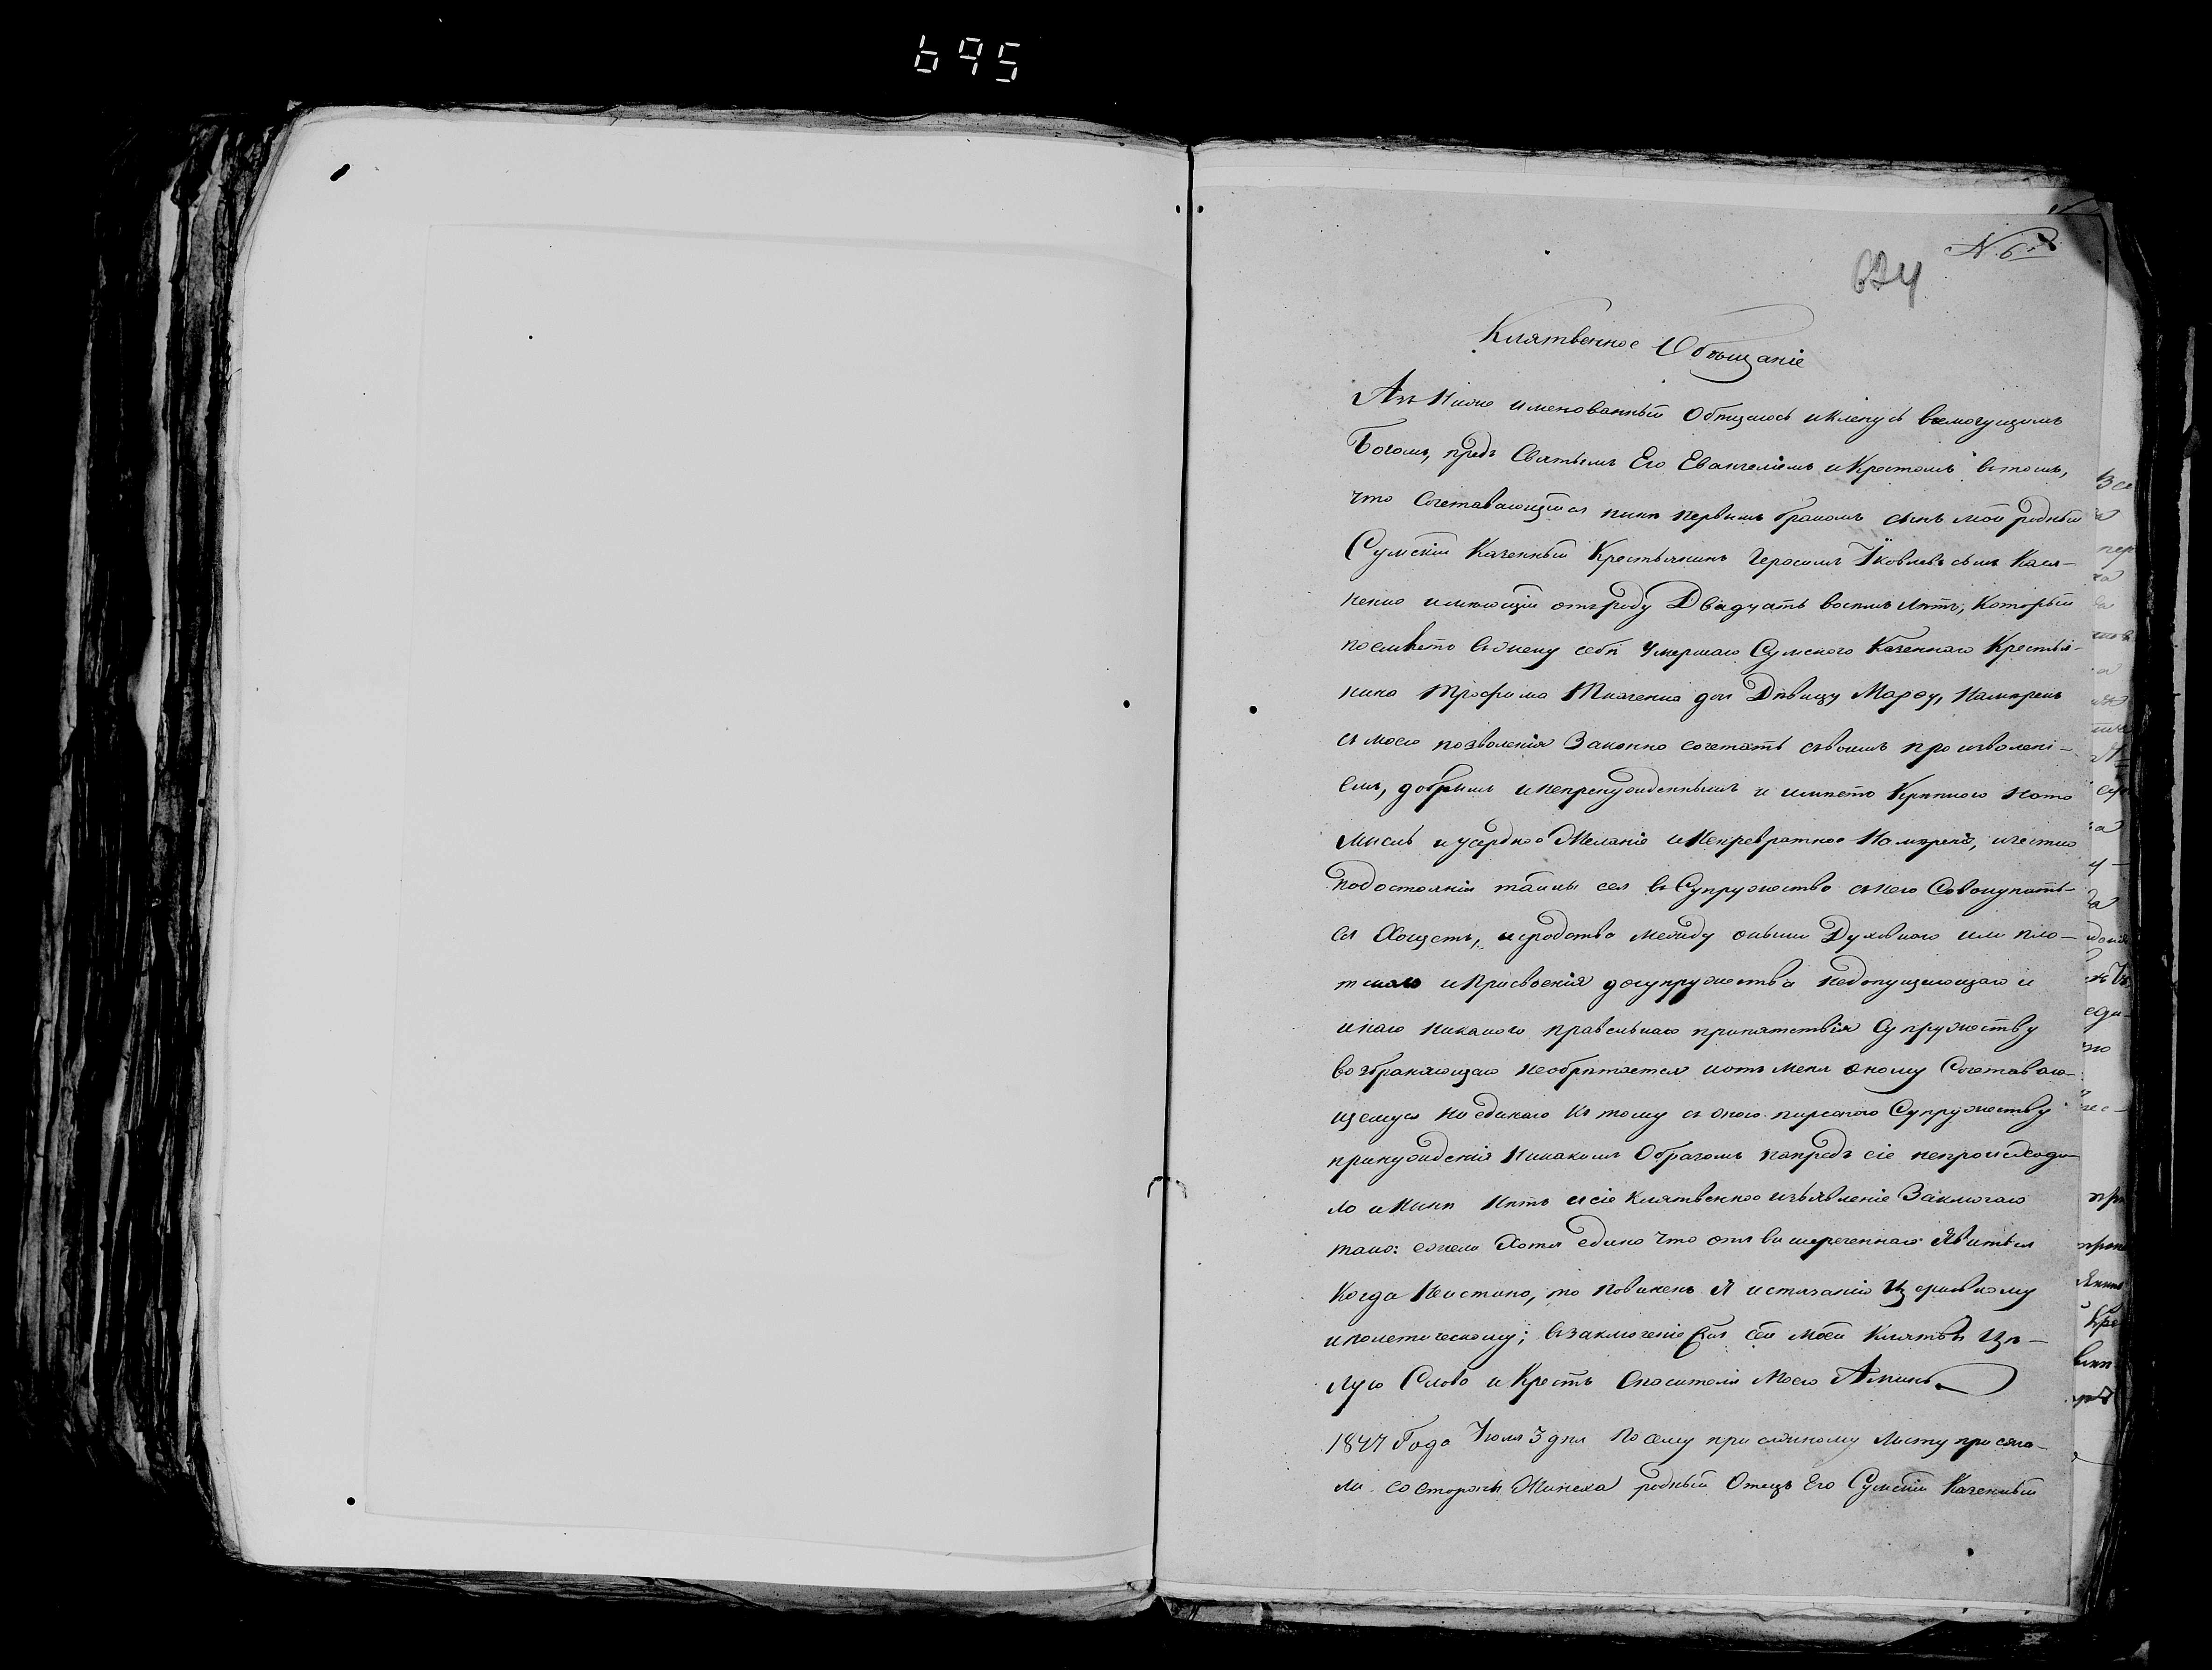 695
N. 6й
624
Клятвенное Обѣщаніе
Азъ Ниже именованный Обѣщаюсь и кленусь Всемогущимъ
Богомъ, предъ Святымъ Его Евангеліемъ и Крестомъ въ томъ,
что Сочетавающійся нинѣ первымъ бракомъ сынъ мой родный
Сумскій Казенный Крестьянинъ Герасимъ Яковлевъ сынъ Кася-
ненко имѣющій отъ роду Двадцать восемь лѣтъ, который
поемлетъ въ жену себѣ умершаго Сумского Казеннаго Крестья-
нина Трофима Ткаченка дочь Дѣвицу Марѳу, Намѣренъ
съ моего позволенія Законно сочетать съ воимъ произволені-
емъ, добрымъ и непренужденнымъ и имѣетъ Крѣпкого на то
мисль и усердное Желаніе и Непревратное Намѣреніе, и честно
по достоянію тайны сея въ Супружество с нею Совокупить-
ся Хощетъ, и сродства между оными Духовнаго или пло-
тскаго и присвоенія до супружества недопущающаго и
инаго никакого правельнаго припятствія Супружеству
возбраняющаго необрѣтается и отъ меня оному Сочетаваю-
щемуся ни единаго къ тому съ оною персоною Супружеству
принужденія Никакимъ Образомъ напредъ сіе непроисходи-
ло и нинѣ Нѣтъ и сіе клятвенное изъявленіе Заключаю
тако: ежели Хотя едино что отъ вишереченнаго Явиться
Когда Неистино, то Повиненъ Я истязанію Церковному
и политическому; въ заключеніе сей моей Клятвы Цѣ-
лую Слова и Крестъ Спасителя Моего Аминь
1847 Года Июля 3 дня По сему присяжному Листу присяга-
ли со стороны Жениха родный Отецъ Его Сумскій Казенный